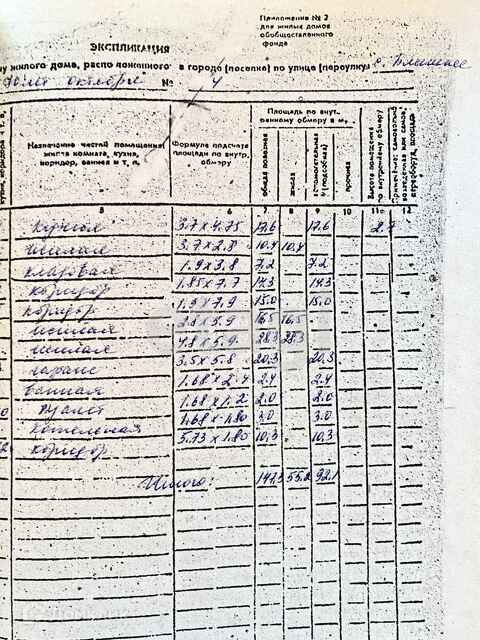 Приложение № 2
для жилых домов
обобществленного
фонда
ЭКСПЛИКАЦИЯ
жилого дома, расположенного в городе (поселке) по улице (переулку)
лет октября № 4
Назначение частей помещения: жилая комната, кухня, коридор, ванная и т. п.
Формула подсчета площади по внутр. обмеру
Площадь по внутреннему обмеру в м²
общая полезная
жилая
прочная
Высота помещения по внутреннему обмеру
5 6 7 8 9 10 11 12
кухня 3.7 x 4.75 17.6 17.6 2.7
жилая 3.7 x 2.8 10.4 10.4
кладовая 1.9 x 3.8 7.2 7.2
коридор 1.85 x 7.7 14.3 14.3
коридор 1.9 x 7.9 15.0 15.0
жилая 2.8 x 5.9 16.5 16.5
жилая 4.8 x 5.9 28.3 28.3
гараж 3.5 x 5.8 20.3 20.3
ванная 1.68 x 2.4 2.4 2.4
туалет 1.68 x 1.2 2.0 2.0
котельная 1.68 x 1.80 3.0 3.0
коридор 5.73 x 1.80 10.3 10.3
Итого: 147.3 55.2 92.1